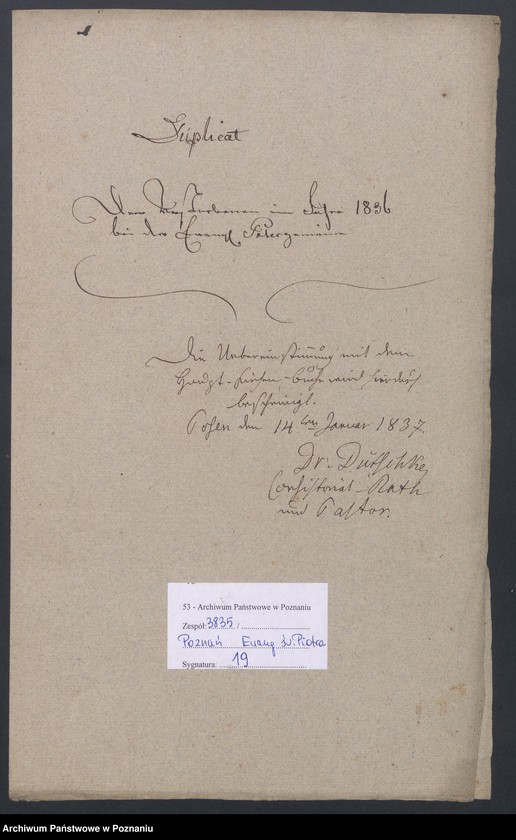 Duplicat
Der Verstorbenen im Jahre 1836
bei der Evangl. Petrigemeine
Die Uebereinstimmung mit dem
Haupt-Kirchen-buche wird hierdurch
bescheinigt.
Posen den 14ten Januar 1837.
Dr. Dütschke
Consistorial-Rath
und Pastor.
53 - Archiwum Państwowe w Poznaniu
Zespół: 3835 /
Poznań Ewang. św. Piotra
Sygnatura: 19
Archiwum Państwowe w Poznaniu